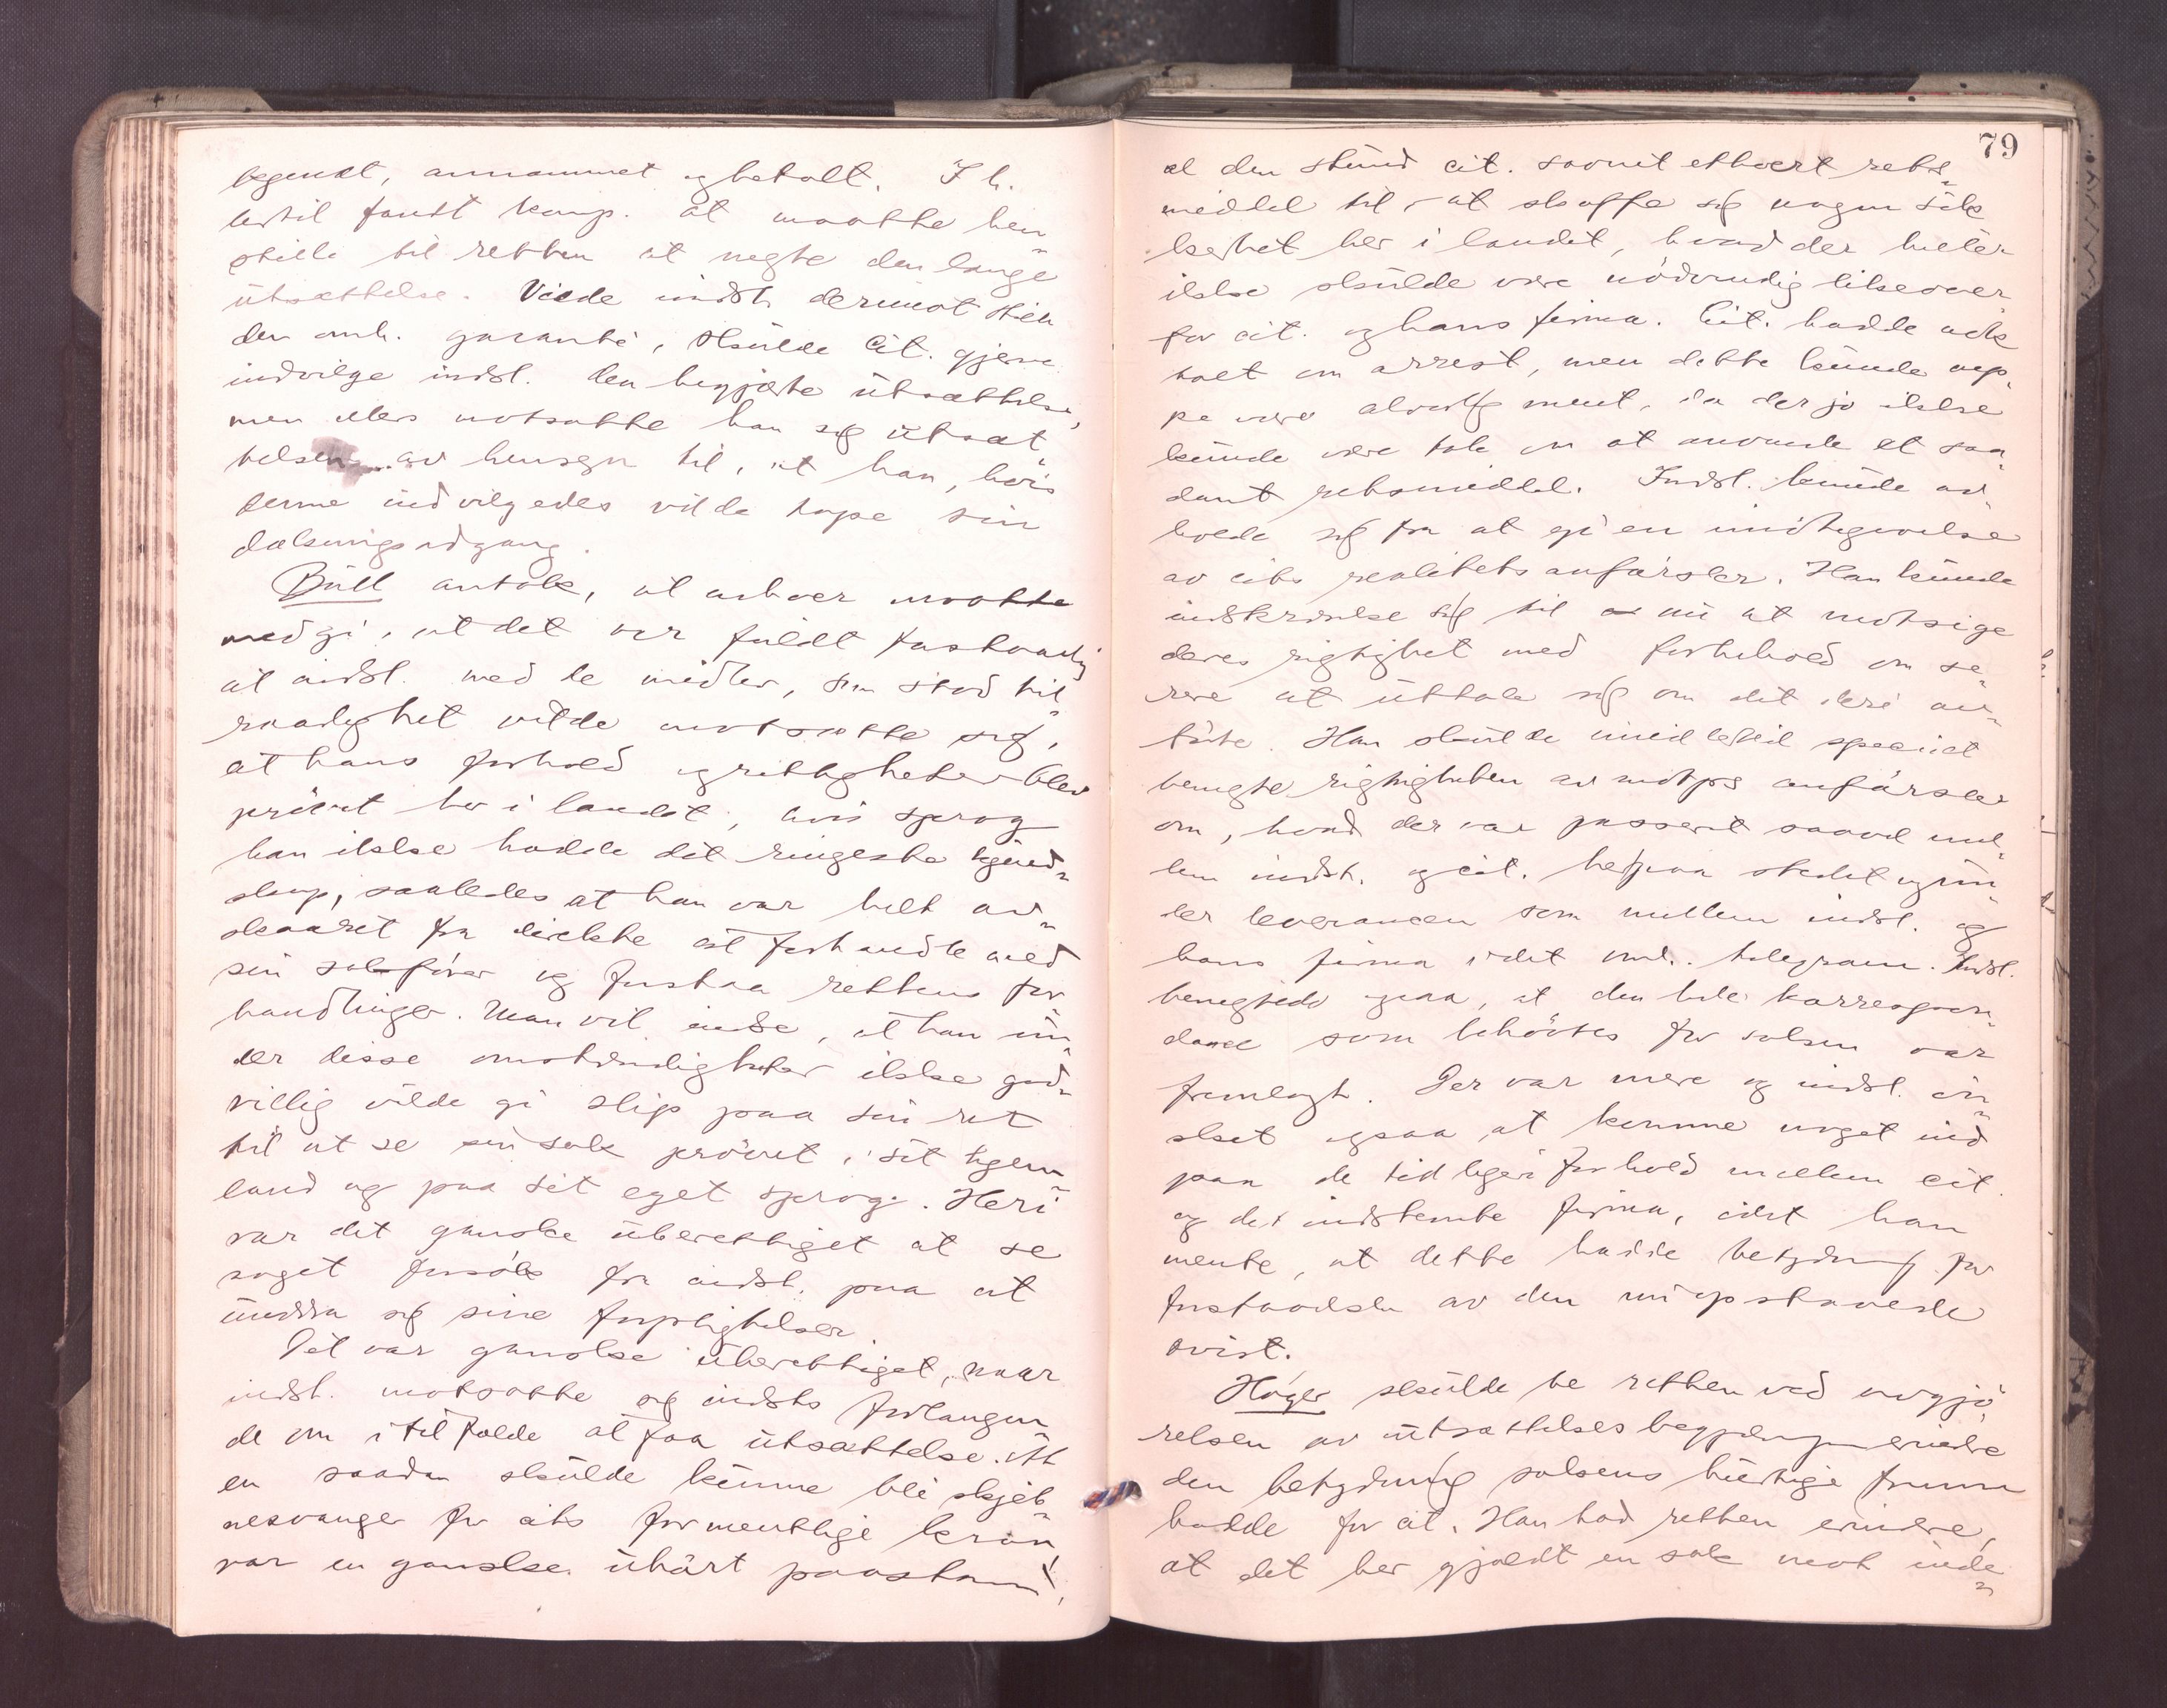 kjendt, annammet og betalt. I h.
hertil fandt komp. at maatte hen„
stille til retten at negte den lange
utsættelse. Vilde indst. derimot stille
den omh. garanti, skulde Cit. gjerne
indvilge indst. den begjærte utsættelse,
men ellers motsatte han sig utsæt„
telsen av hensyn til, at han, hvis
denne indvilgedes vilde tape sin
dækningsadgang.
Bull antok, at enhver maatte
medgi, at det var fuldt forstaaelig
at indst. med de midler, som stod til
raadighet vilde motsætte sig,
at hans forhold og rettigheter blev
prövet her i landet, hvis sprog
han ikke hadde det ringeste kjend„
skap, saaledes at han var helt av„
skaaret fra direkte at forhandle med
sin sakförer og forstaa rettens for„
handlinger. Man vil indse, at han un„
der disse omstændigheter ikke god„
villig vilde gi slip paa sin ret
til at se sin sak prövet i sit hjem„
land og paa sit eget sprog. Heri
var det ganske uberettiget at se
noget forsök fra indst. paa at
unddra sig sine forpligtelser.
Det var ganske uberettiget, naar
indst. motsatte sig indsts forlangen„
de om i tilfælde at faa utsættelse. At
en saadan skulde kunne bli skjæb„
nesvanger for cits formentlige krav,
var en ganske uhört paastand,
79
al den stund cit. savnet ethvert rets„
middel til at skaffe sig nogen sik„
kerhet her i landet, hvad der heller
ikke skulde være nödvendig likeover„
for cit. og hans firma. Cit. hadde nok
talt om arrest, men dette kunde nep„
pe være alvorlig ment, da der jo ikke
kunde være tale om at anvende et saa„
dant retsmiddel. Indst. kunde av„
holde sig fra at gi en imötegaaelse
av cits realitetsanförsler. Han kunde
indskrænke sig til nu at motsige
deres rigtighet med forbehold om se„
nere at uttale sig om det deri an„
förte. Han skulde imidlertid specielt
benegte rigtigheten av motps anförsler
om, hvad der var passert saavel mel„
lem indst. og cit. herpaa stedet un„
der leverancen som mellem indst. og
hans firma i det omh. telegram. Indst.
benegtede ogsaa, at den hele korrespon„
dance som behövtes for saken var
fremlagt. Der var mere og indst. ön„
sket ogsaa at komme noget ind
paa de tidligere forhold mellem cit.
og det indstevnte firma, idet han
mente, at dette hadde betydning for
forstaaelsen av den nu opstaaede
tvist.
Höyer skulde be retten ved avgjö„
relsen av utsættelsesbegjæringen erindre
den betydning sakens hurtige fremme
hadde for cit. Han bad retten erindre,
at det her gjældt en sak mot inde„